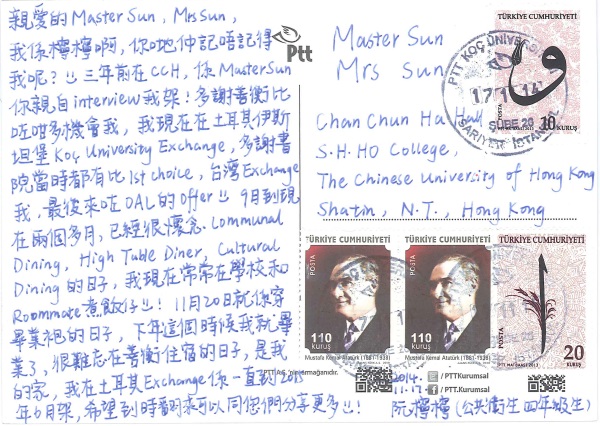 親愛的Master Sun, Mrs Sun,
我係檸檸啊, 你哋仲記唔記得
我呢? 三年前在CCH, 你Master Sun
你親自interview我架! 多謝善衡比
咗咁多機會我, 我現在在土耳其伊斯
坦堡Koç University Exchange, 多謝書
院當時都有比1st choice, 台灣Exchange
我, 最後來咗OAL的offer 9月到現
在兩個多月, 已經很懷念. Communal
Dining, High Table Diner, Cultural
Dining的日子, 我現在常常在學校和
Roommate煮飯仔!! 11月20日就你穿
畢業袍的日子, 下年這個時候我就畢
業了, 很難忘在善衡住宿的日子, 是我
的家, 我在土耳其Exchange你一直到2015
年6月架, 希望到時翻來可以同你們分享更多!!
阮檸檸 (公共衛生四年級生)
2014.
11.17.
Ptt
Master Sun
Mrs Sun
Chan Chun Ha Hall
S.H. HO College,
The Chinese University of Hong Kong
Shatin, N.T., Hong Kong
TÜRKİYE CUMHURİYETİ
POSTA
10 KURUŞ
PTT KOÇ ÜNİVERSİTESİ
ŞUBE 20
SARIYER İSTANBUL
TÜRKİYE CUMHURİYETİ
POSTA
110
kuruş
Mustafa Kemal Atatürk (1881-1938)
TÜRKİYE CUMHURİYETİ
POSTA
110
kuruş
Mustafa Kemal Atatürk (1881-1938)
TÜRKİYE CUMHURİYETİ
POSTA
20
KURUŞ
/PTTKurumsal
/PTTKurumsal